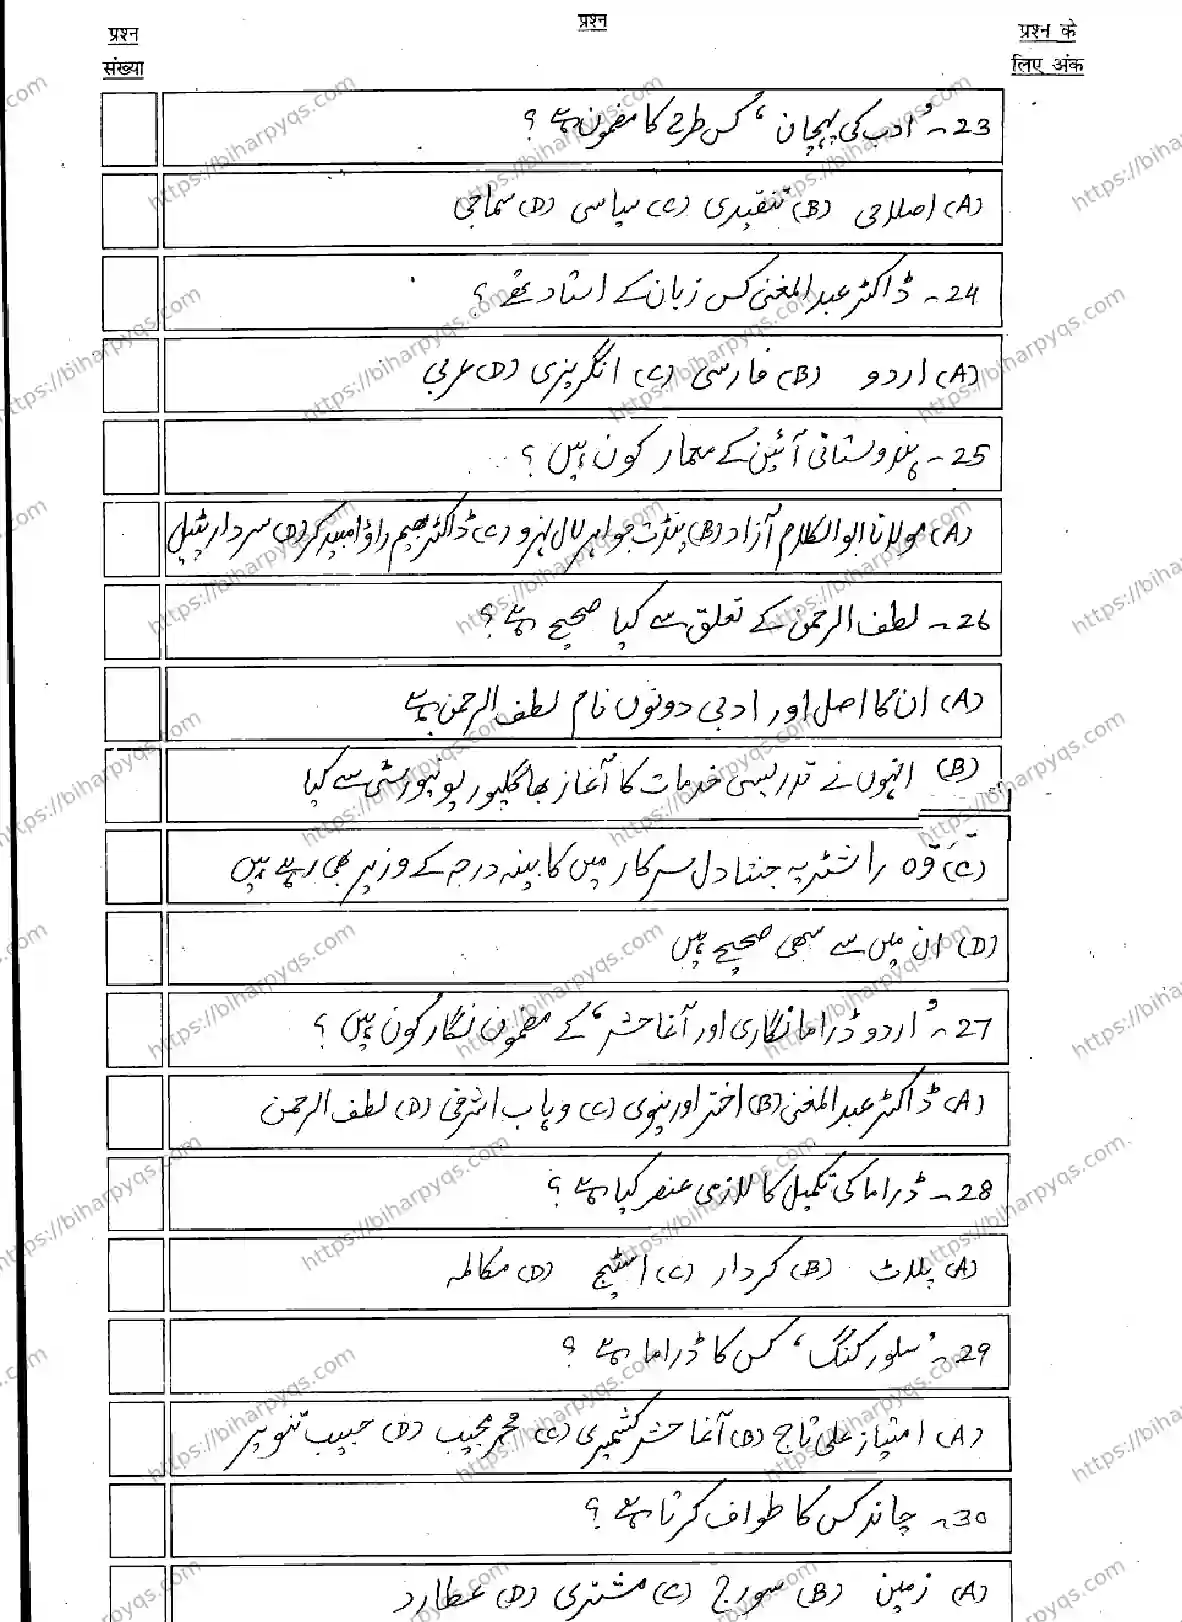 प्रश्न
संख्या
प्रश्न
प्रश्न के
लिए अंक
23۔ 'ادب کی پہچان' کس طرح کا مضمون ہے؟
(A) اصلاحی (B) تنقیدی (C) سیاسی (D) سماجی
24۔ ڈاکٹر عبدالمغنی کس زبان کے استاد تھے؟
(A) اردو (B) فارسی (C) انگریزی (D) عربی
25۔ ہندوستانی آئین کے معمار کون ہیں؟
(A) مولانا ابوالکلام آزاد (B) پنڈت جواہر لال نہرو (C) ڈاکٹر بھیم راؤ امبیڈکر (D) سردار پٹیل
26۔ لطف الرحمن کے تعلق سے کیا صحیح ہے؟
(A) ان کا اصل اور ادبی دونوں نام لطف الرحمن ہے
(B) انہوں نے تدریسی خدمات کا آغاز بھاگلپور یونیورسٹی سے کیا
(C) وہ راشٹریہ جنتا دل سرکار میں کابینہ درجہ کے وزیر بھی رہے ہیں
(D) ان میں سے سبھی صحیح ہیں
27۔ 'اردو ڈراما نگاری اور آغا حشر' کے مضمون نگار کون ہیں؟
(A) ڈاکٹر عبدالمغنی (B) اختر اورینوی (C) وہاب اشرفی (D) لطف الرحمن
28۔ ڈراما کی تکمیل کا لازمی عنصر کیا ہے؟
(A) پلاٹ (B) کردار (C) اسٹیج (D) مکالمہ
29۔ 'سلور کنگ' کس کا ڈراما ہے؟
(A) امتیاز علی تاج (B) آغا حشر کشمیری (C) محمد مجیب (D) حبیب تنویر
30۔ چاند کس کا طواف کرتا ہے؟
(A) زمین (B) سورج (C) مشتری (D) عطارد
https://biharpyqs.com